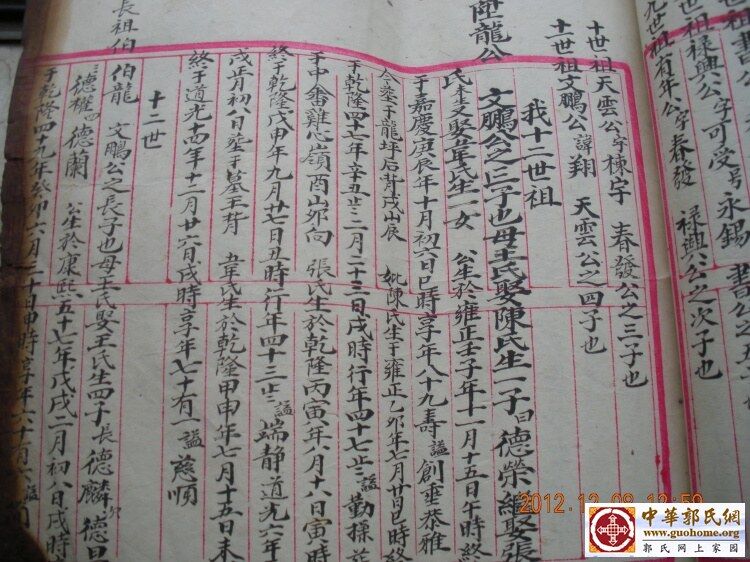 九世祖有年公字春發 祿興公之次子也
世祖祿興公字可受号永錫
十世祖天雲公字棟宇 春發公之三子也
十一世祖文鵬公諱翔 天雲公之四子也
陞龍公
我十二世祖
文鵬公之三子也母王氏娶陳氏生一子曰德榮繼娶張
氏未生又娶葉氏生一女 公生於雍正壬子年十一月十五日午時終
于嘉慶庚辰年十月初六日巳時享年八十九壽諡創垂恭雅
公葬于龍坪后背戍山辰 妣陳氏生于雍正乙卯年七月廿日巳時終
于乾隆四十六年辛丑二月二十三日戌時行年四十七諡勤操
于中畲雞心嶺酉山卯向 張氏生於乾隆丙寅年八月十八日寅時
終于乾隆戊申年九月廿七日丑時行年四十三諡端静道光六年
戌正月初八日塟于墓王背 葉氏生於乾隆甲申年七月十五日未
終于道光十四年十二月廿六日戌時享年七十有一諡慈順
十二世
長祖伯
伯龍 文鵬公之長子也母王氏娶王氏生四子長德麟次德
三德權四德蘭 公生於康熙五十七年戊戌二月初八日戌時
于乾隆四十九年 六月二十日申時享年六十有 諡
2012.12.08 12:59
中華郭氏網
www.guohome.org
郭氏网上家园